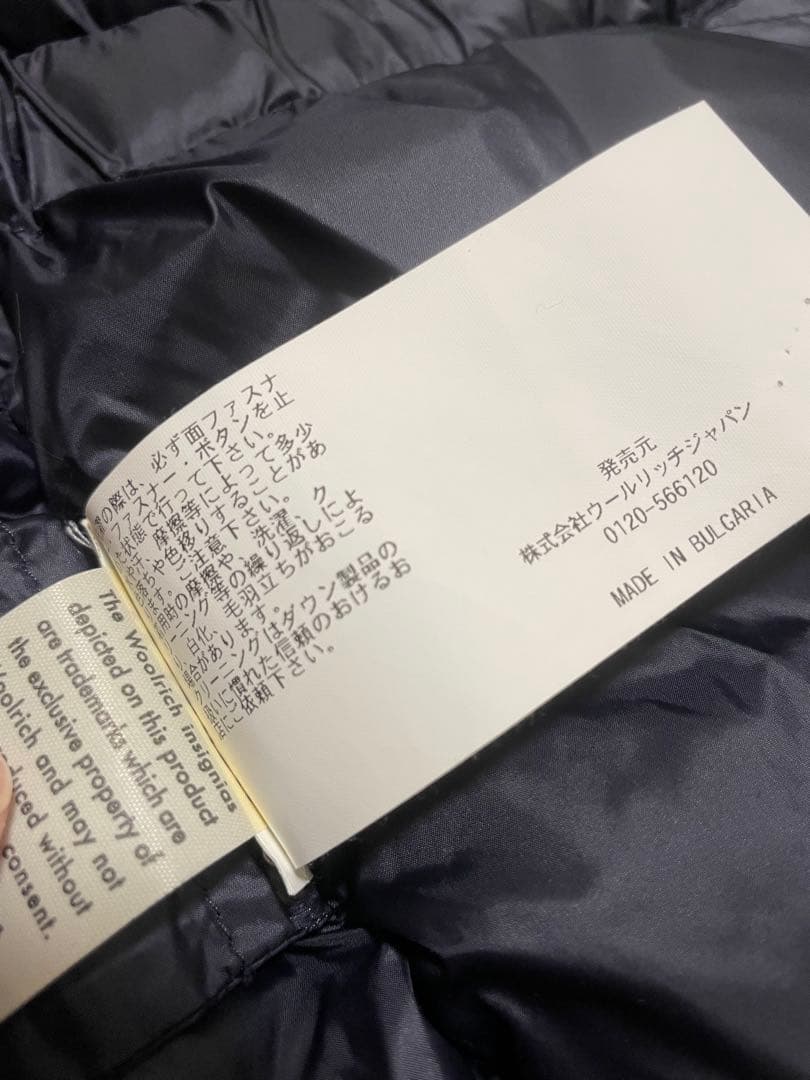 の際は、必ず面ファスナ
ファスナー・ボタンを止
状態で行って下さい。
や、摩擦等によって多少
落ちや色移りすることがあ
ます。ご注意下さい。
用時の摩擦や、洗濯、ク
ーニング等の繰り返しによ
り、白化、毛羽立ちがおこる
場合があります。
クリーニングはダウン製品の
扱いに慣れた信頼のおけるお
店にご依頼下さい。
発売元
株式会社ウールリッチジャパン
0120-566120
MADE IN BULGARIA
The Woolrich insignias
depicted on this product
are trademarks which are
the exclusive property of
Woolrich and may not
duced without
consent.